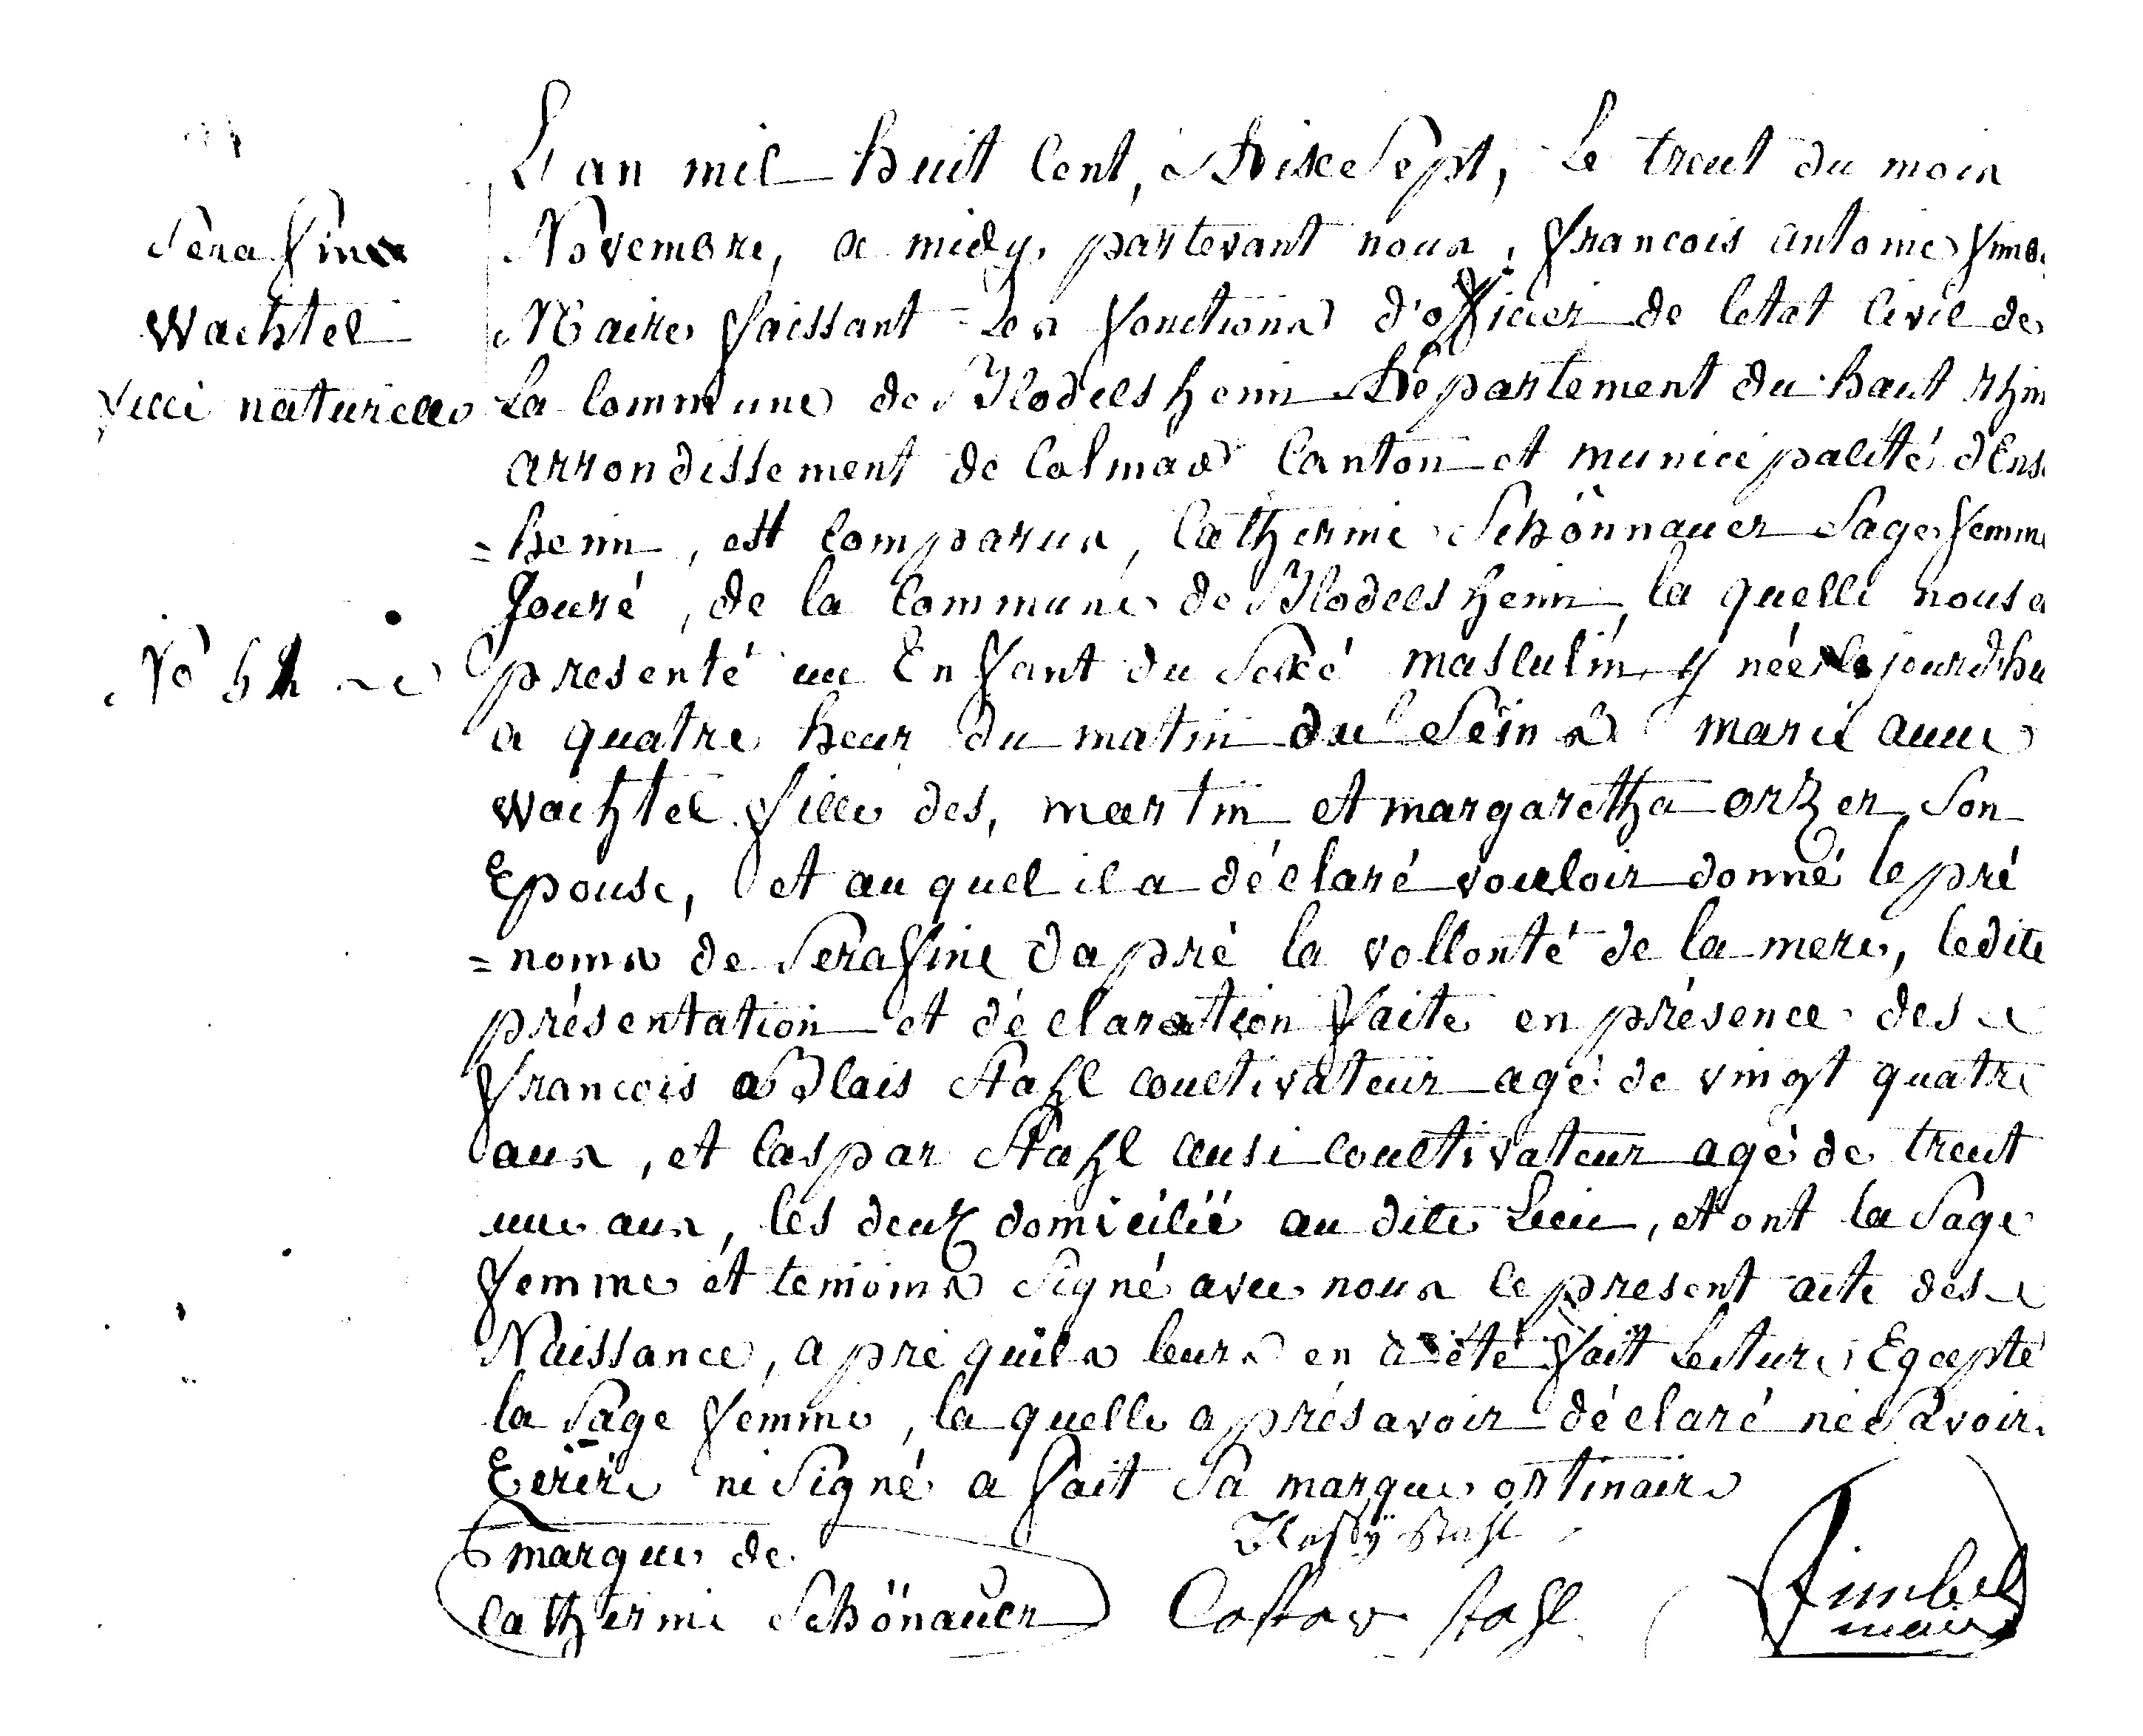 L'an mil huit Cent, Dixe Sept, Le trent du mois
Serafine
Novembre, a midy, partevant nous, francois antoine
Wachtel
Maire faissant Les fonctions d'officier de letat Civil de
fille naturelle
La Commune de Blodelsheim Département du haut rhin
arrondissement de Colmar Canton et municipalité d'Ens
= heim, est Comparus, Catherine Schönnauer Sage femme
Jouré, de la Commune de Blodelsheim, la quelle nous a
No
présenté un Enfant du Sexé masculin, y née le jourdhu
a quatre heur du matin du Sein d marie anne
Wachtel fille des, martin et margaretha orzer Son
Epouse, et au quel il a déclaré vouloir donné le pré
= noms de Serafine dapré la vollonté de la mere, ledite
présentation et déclaration faite en présence des
francois Blais Stahl coultivateur agé de vingt quatre
ans, et Caspar Stahl ausi coultivateur agé de trent
une ans, les deux domicilié au dite Lieu, et ont la Sage
femme et temoins Signé avec nous le present acte des
Naissance, apré quils leurs en a été fait Lecture, Egcepté
la Sage femme, la quelle aprés avoir déclaré ne Savoir
Ecrire ni Signé a fait Sa marque ortinaire
marque de
Stahl
Catherine Schönauer
Stahl
Fimbel
maire